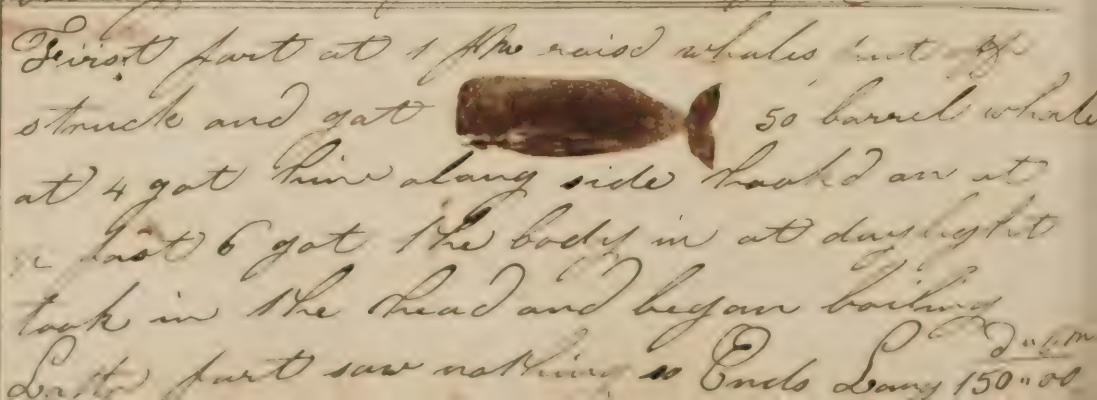 First part at 1 PM raisd whales but
struck and gat 50 barrel whale
at 4 got him along side hookd on at
past 6 got the body in at daylight
took in the head and began boiling
Latter part saw nothing so Ends Long 150"00